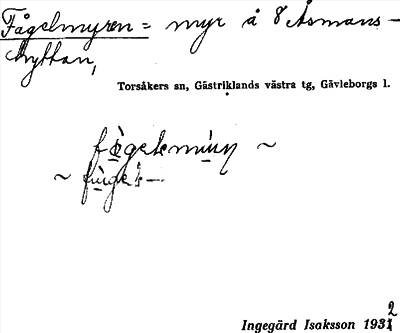 Fågelmyren = myr å 8 Åsmans-
hyttan,
Torsåkers sn, Gästriklands västra tg, Gävleborgs l.
~
~
Ingegärd Isaksson 1932